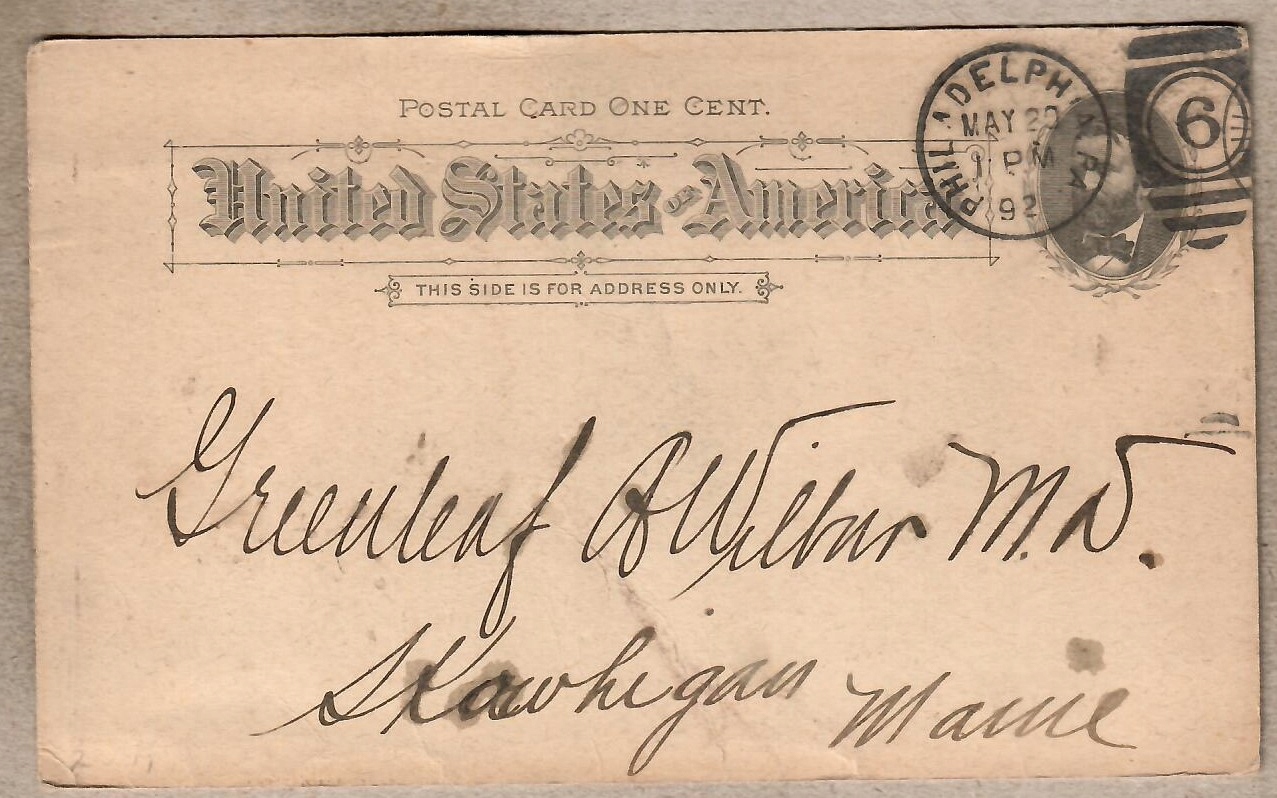 POSTAL CARD ONE CENT.
United States OF America
THIS SIDE IS FOR ADDRESS ONLY.
PHILADELPHIA, PA
MAY 20
1 PM
92
6
Greenleaf A Wilbur M.D.
Skowhigan Maine